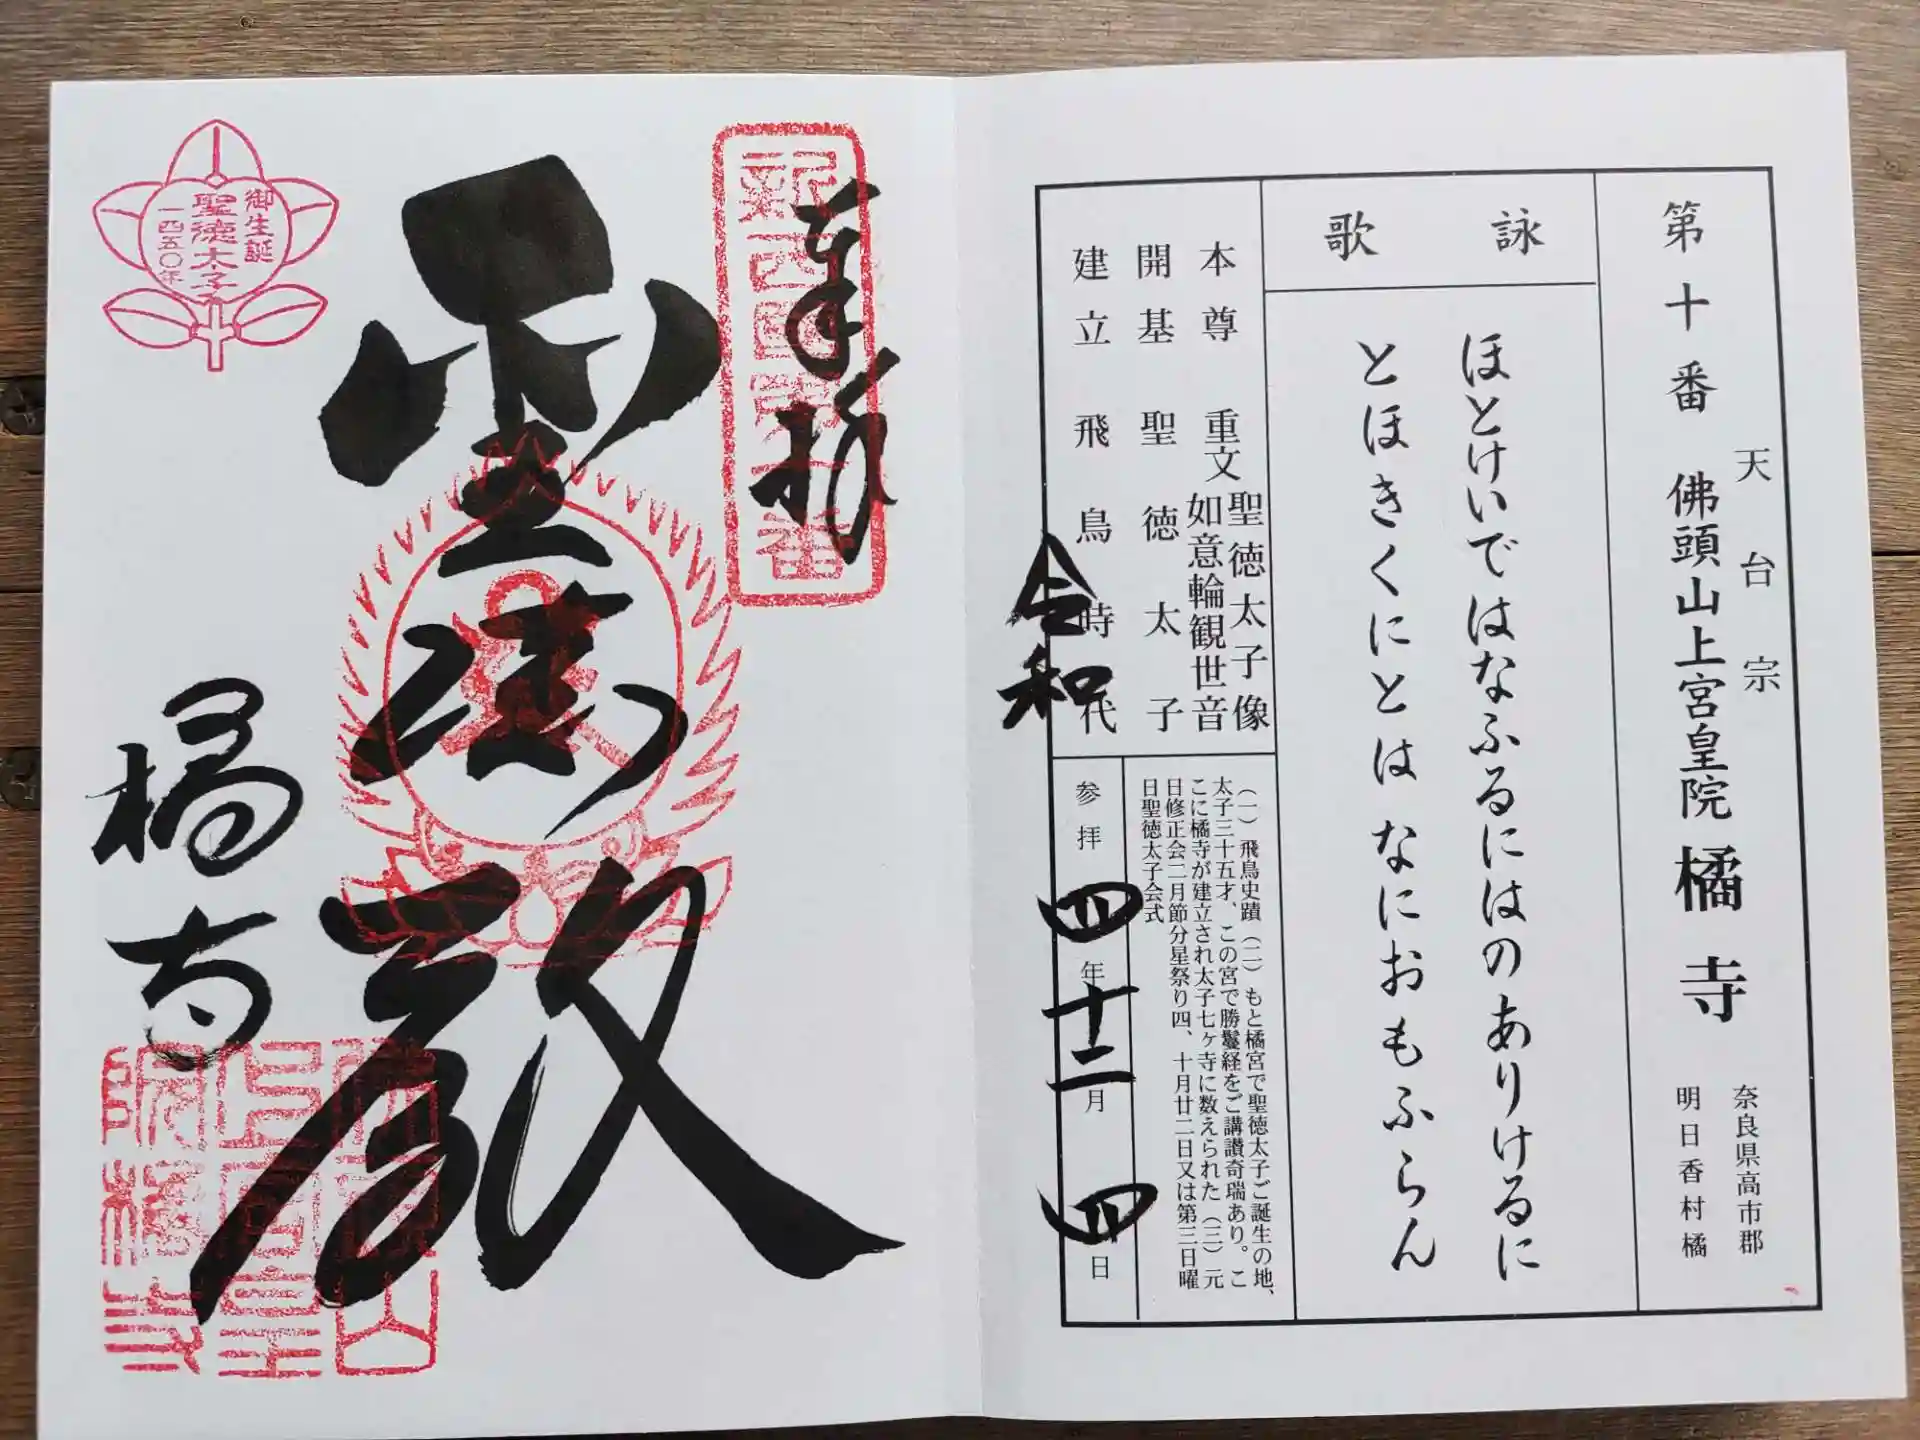 第十番
天台宗
佛頭山上宮皇院 橘寺
奈良県高市郡
明日香村橘
詠歌
ほとけいではなふるにはのありけるに
とほきくにとはなにおもふらん
本尊 重文 聖徳太子像
如意輪観世音
開基 聖徳太子
建立 飛鳥時代
(一)飛鳥史蹟(二)もと橘宮で聖徳太子ご誕生の地、
太子三十五才、この宮で勝鬘経をご講讃奇瑞あり。こ
こに橘寺が建立され太子七ヶ寺に数えられた(三)元
日修正会二月節分星祭り四、十月廿二日又は第三日曜
日聖徳太子会式
参拝 令和四年十二月四日
奉拝
聖徳殿
橘寺
御生誕
聖徳太子
一四五〇年